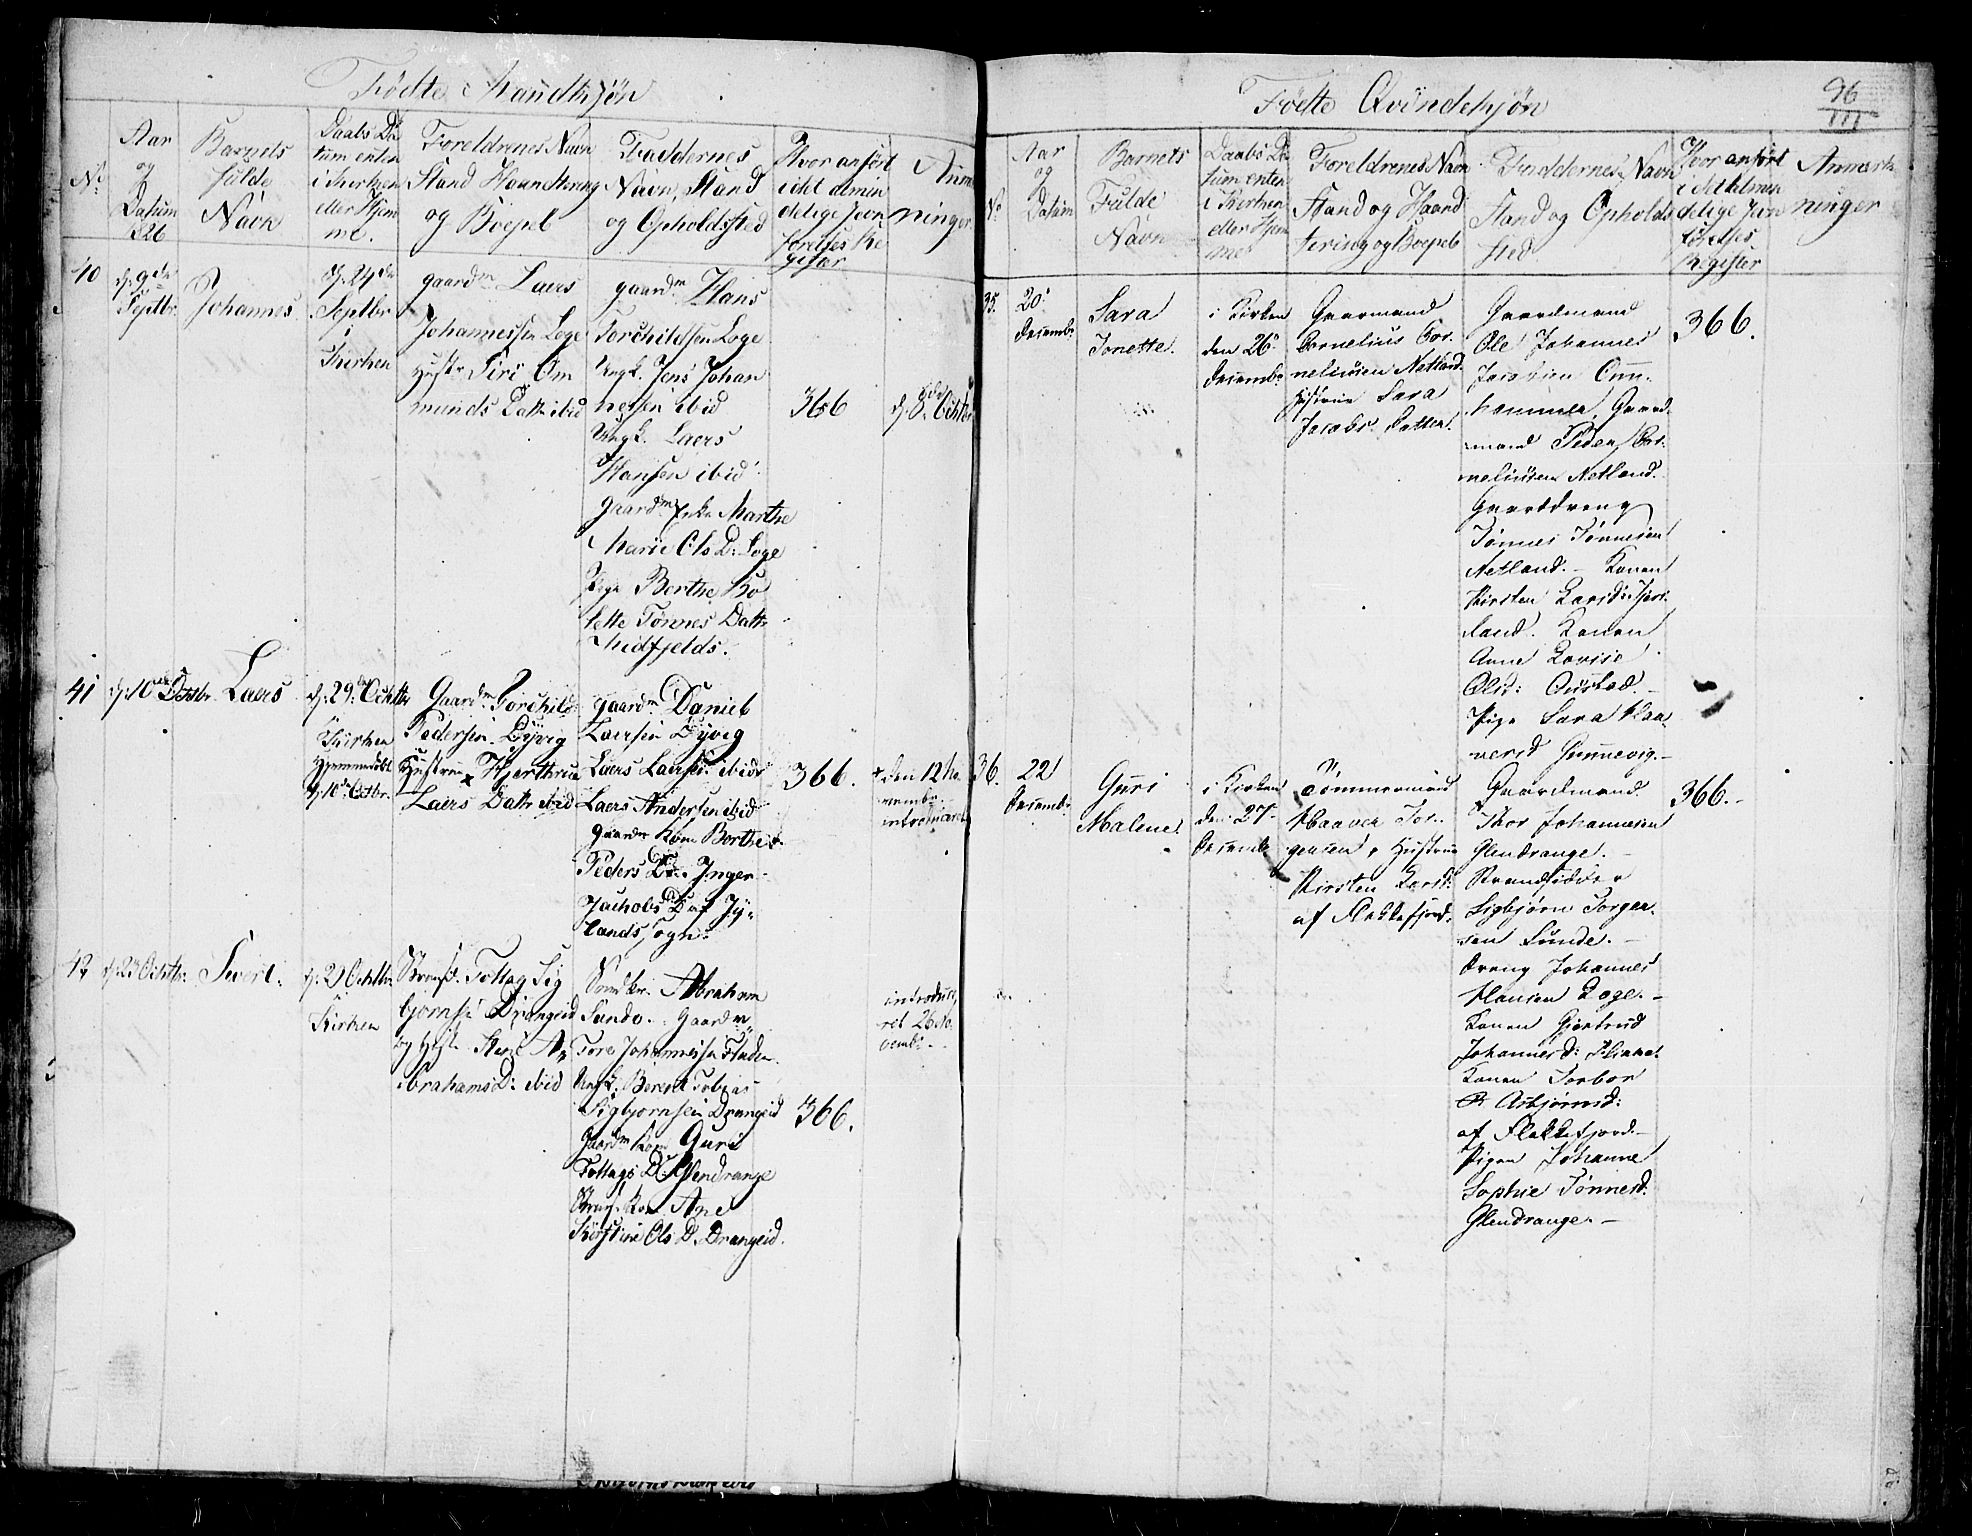 Födte Mandkjøn
No
Aar
og
Datum
826
Barnets
fulde
Navn
Daabs Da
tum enten
i Kirken
eller Hjem
me.
Foreldrenes Navn
Stand Haandtering
og Boepel
Faddernes
Navn, Stand
og Opholdsted
Hvor anført
i det almin
delige Jevn
førelses Re
gister
Anm
ninger.
40
d. 9de
Septbr
Johannes
d. 24de
Septbr
i
Kirken
gaardm Laers
Johannessen Loge
Hustr Siri Om
munds Datt ibid
gaardm Hans
Torchildsen Loge
Ungk. Jens Johan
nesen ibid
Ungk. Laers
Hansen ibid
gaardm Enke Marthe
Marie Ols D: Loge
Pige Berthe Bo
lette Tønnes Datt
Midfjelds.
366
d. 8de Octbr
41
d. 10de Octbr.
Laers
d. 29de Octbr
Kirken
Hjemmedøbt
d. 10de Octbr.
Gaardm Torchild
Pedersen Dyvig
Hustrue Hjerthrue
Laers Datr ibid
gaardm Daniel
Laersen Dyvig
Laers Laersen ibid
Laers Andersen ibid
gaardm Kone Berthe
Peders Dr. Inger
Jachobs D af Jy-
lands sogn.
366.
den 12 No
vembr.
introduceret
42
d. 23 Octbr.
Sivert.
d. 29 Octbr.
Kirken
Strands. Tollag Sig
bjørnsen Drangeid
og Hust.
Abrahams D: ibid
Abraham
Sande. Gaardm
Tore Johannessen
Ungk. Berent Tobias
Sigbjørnsen Drangeid
Gaardm Kone Guri
Tollags D: Glendrange
Strands. Kone Ane
Kirstine Ols D. Drangeid.
366.
introduce
ret 26 No
vembr.
Födte Qvindekjøn
96
No
Aar
og
Datum
Barnets
Fulde
Navn
Daabs Da
tum enten
i Kirken
eller Hjem
me
Foreldrenes Navn
Stand og Haand
tering og Boepel
Faddernes Navn
Stand og Opholds
sted
Hvor anført
i det almin
delige Jevn
førelses
Register
Anmærk
ninger
35.
20.
Decembr.
Sara
Tonette.
i Kirken
den 26
Decembr
Gaarmand
Cornelius Cor-
neliusen Netland.
Hustrue Sara
Jacobs Datter.
Gaardmand
Ole Johannes
Jacobsen
hammer, Gaard-
mand Peder Cor-
neliusen Netland.
Gaarddreng
Tönnes Tönnesen
Netland. – Konen
Kirsten Larsd:
land. Konen
Anne Lovise
Olsd:
Pige Sara Haa-
versd Gunnevig. –
366.
36.
22
Decembr
Guri
Malene.
i Kirken
den 27
Decembr
Tömmermand
Haaver Tor-
gersen, Hustrue
Kirsten Larsd:
af Flekkefjord.
Gaardmand
Thor Johannesen
Glendrange. –
Strandsidder
Sigbjørn Torger-
sen Sunde. –
Dreng Johannes
Hansen Loge. –
Konen Giertrud
Johannesd:
Konen Torbor
Asbjørnsd:
af Flekkefjord. –
Pigen Johanne
Sophie Tönnesd:
Glendrange. –
366. –